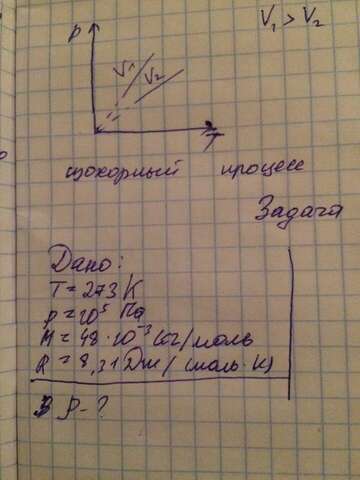 P
V₁ > V₂
V₁
V₂
T
изохорный процесс
Задача
Дано:
T = 273 K
p = 10⁵ Па
M = 48 · 10⁻³ кг/моль
R = 8,31 Дж/(моль·К)
P - ?